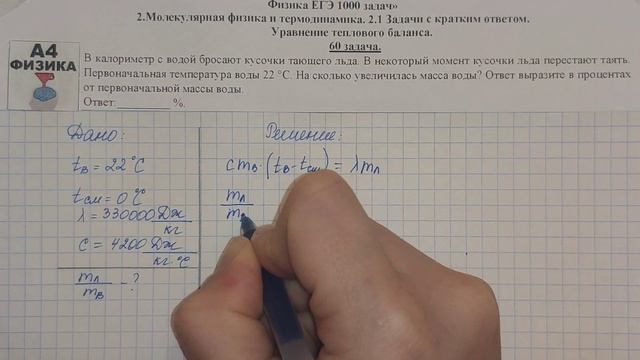 Физика ЕГЭ 1000 задач»
2.Молекулярная физика и термодинамика. 2.1 Задачи с кратким ответом.
Уравнение теплового баланса.
60 задача.
А4
ФИЗИКА
В калориметр с водой бросают кусочки тающего льда. В некоторый момент кусочки льда перестают таять.
Первоначальная температура воды 22 °С. На сколько увеличилась масса воды? Ответ выразите в процентах
от первоначальной массы воды.
Ответ: __________ %.
Дано:
tв = 22°C
tсм = 0 °C
λ = 330000 Дж/кг
c = 4200 Дж/кг·°C
mл/mв - ?
Решение:
cmв·(tв-tсм) = λmл
mл/mв